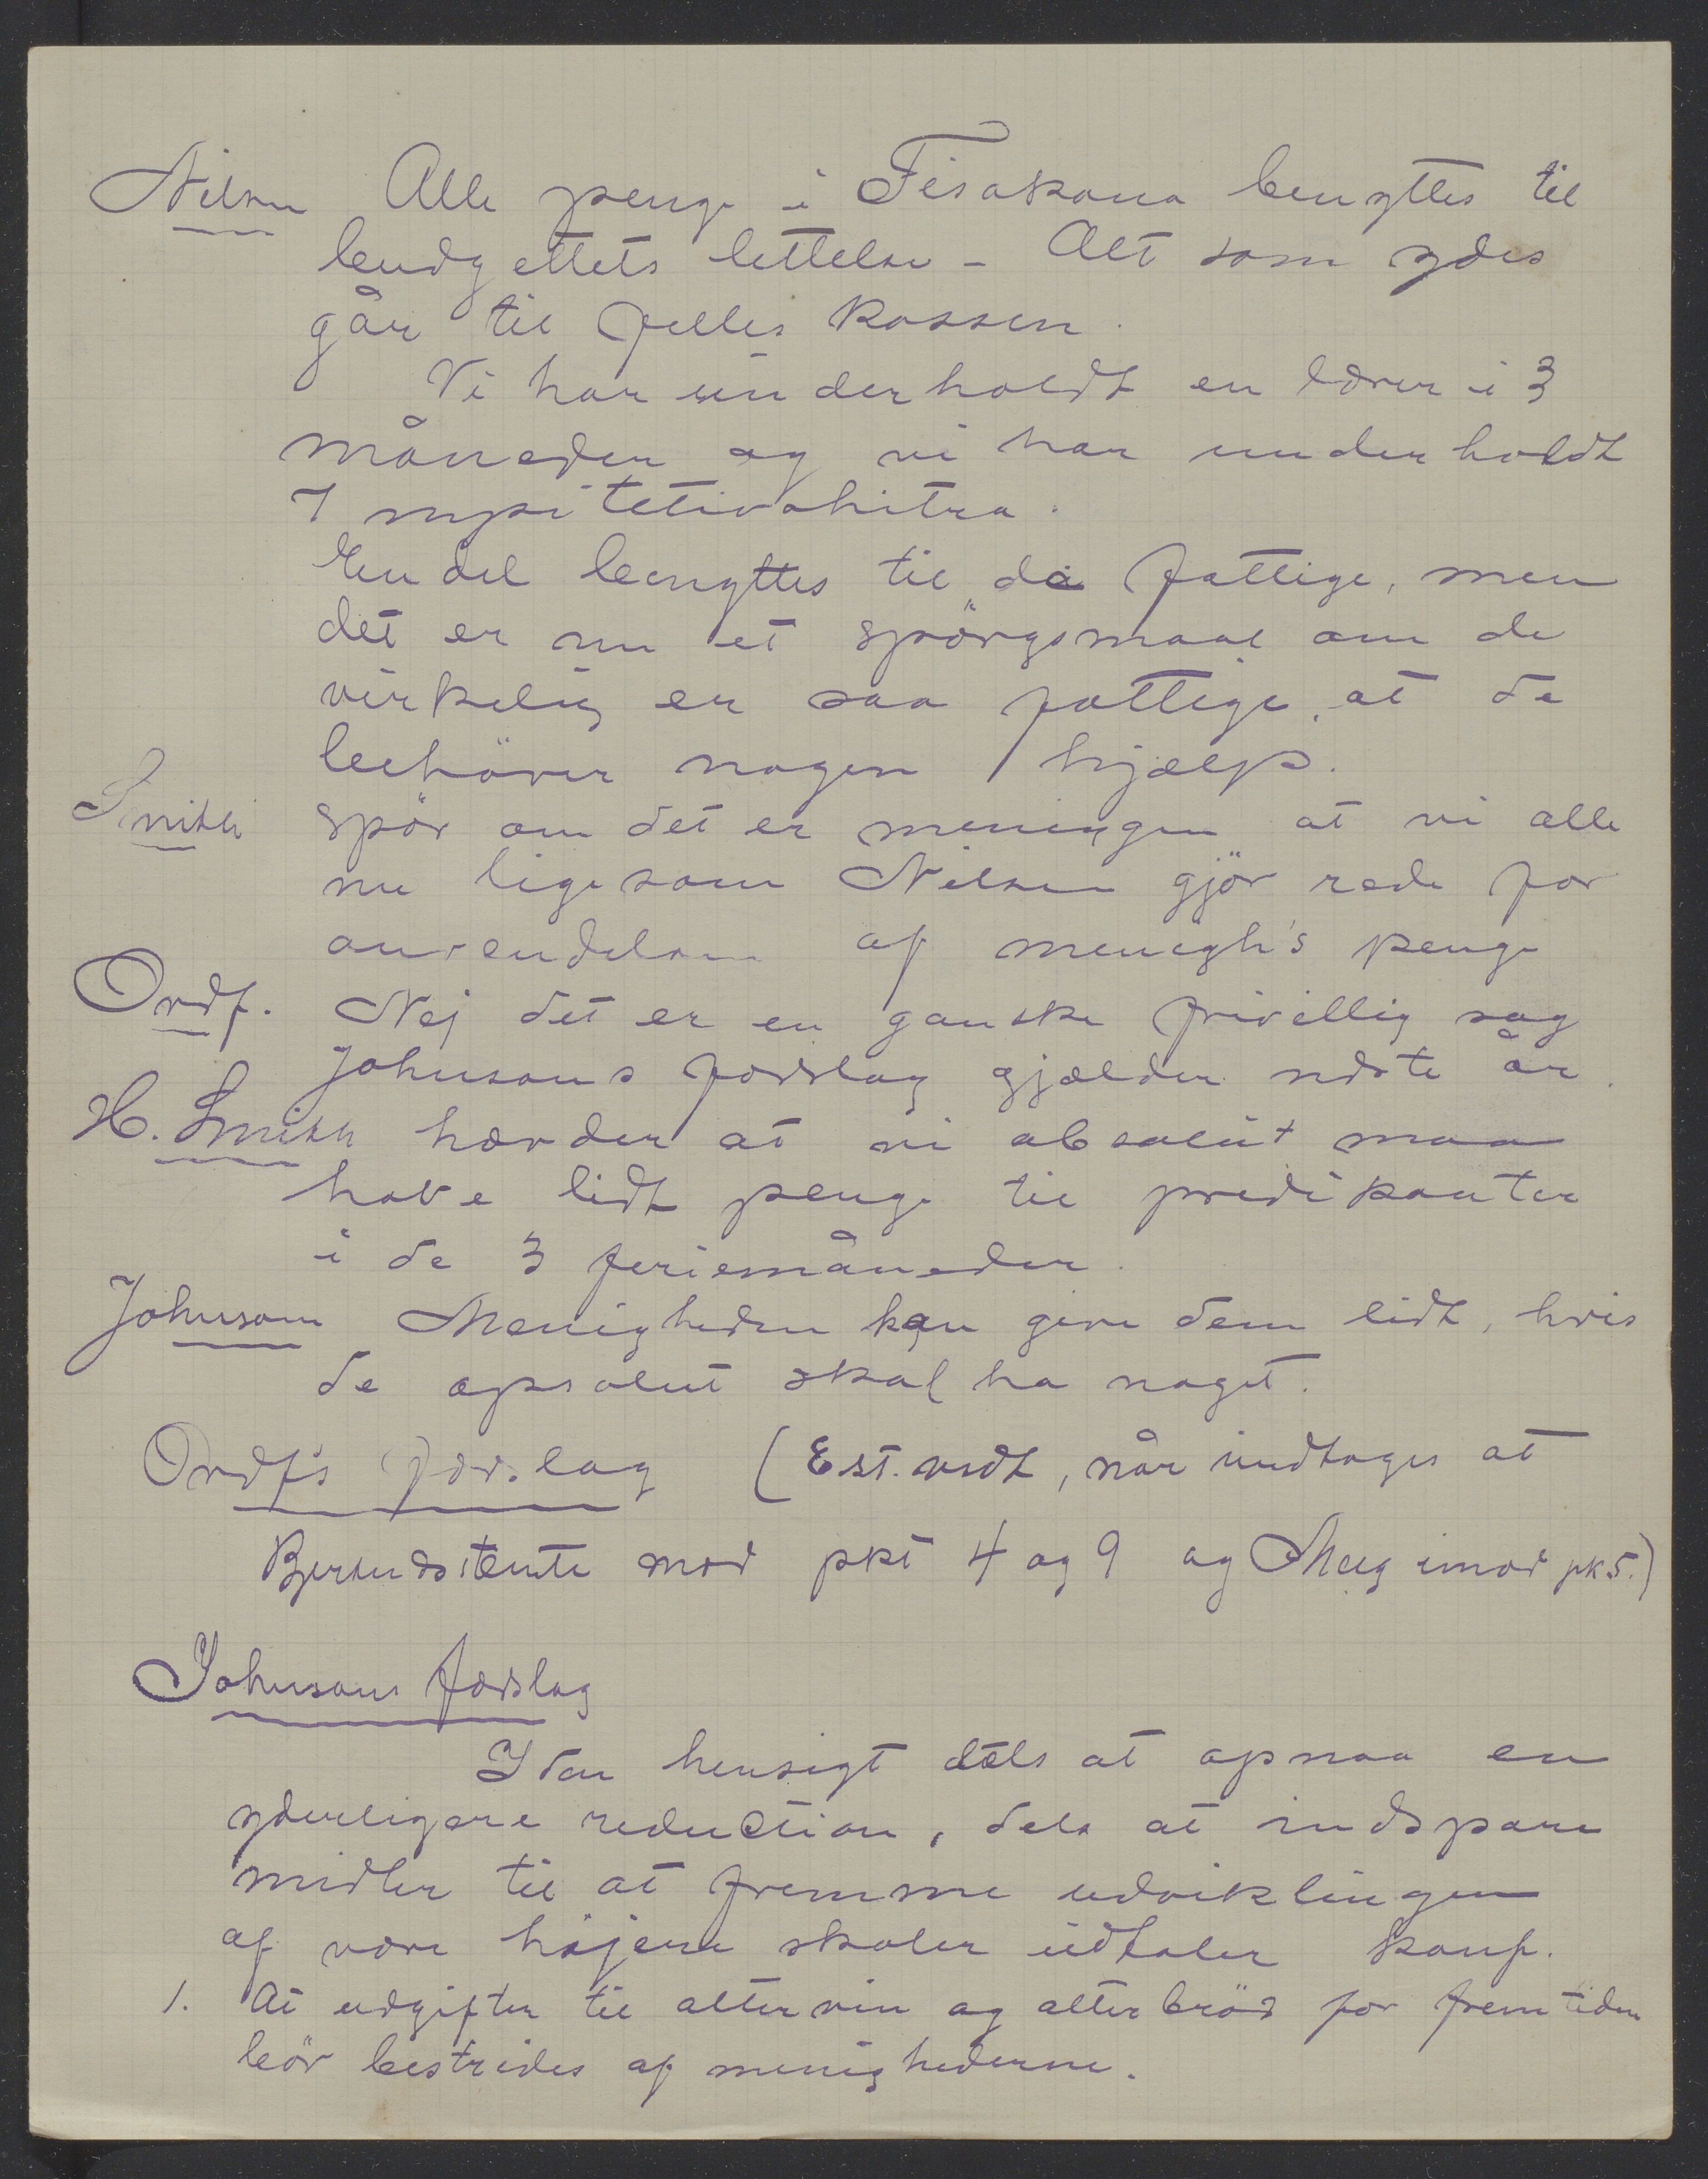 Nilsen Alle penge i Fisakana benyttes til
budgettets lettelse - Alt som ydes
går til felles kassen.
Vi har underholdt en lærer i 3
måneder og vi har underholdt
7 mpitetivohitra.
En del benyttes til de fattige, men
det er nu et spörgsmaal om de
virkelig er saa fattige, at de
behöver nogen hjælp.
Smith spör om det er meningen at vi alle
nu ligesom Nilsen gjör rede for
anvendelsen af menigh's penge
Ordf. Nej det er en ganske frivillig sag
Johnsons forslag gjælder næste år.
H. Smith hævder at vi absolut maa
have lidt penge til predikanter
i de 3 feriemåneder.
Johnson Menigheden kan give dem lidt, hvis
de apsolut skal ha noget.
Ordf's forslag (Est. vedt, når undtages at
Bjertnds stemte mod pkt 4 og 9 og Meeg imod pk 5.)
Johnsons forslag
I den hensigt dels at opnaa en
yderligere reduction, dels at indspare
midler til at fremme udviklingen
af vore højere skoler udtaler konf.
1. At udgifter til altervin og alterbröd for fremtiden
bör bestrides af menighederne.